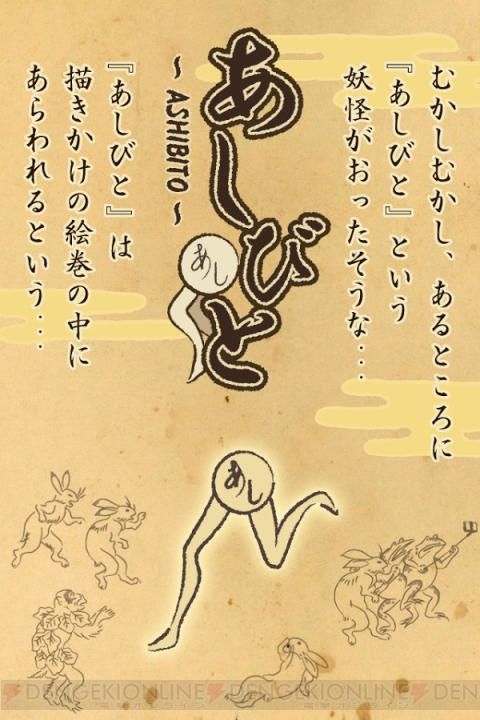 むかしむかし、あるところに
『あしびと』という
妖怪がおったそうな・・・
あしびと
～ASHIBITO～
あし
『あしびと』は
描きかけの絵巻の中に
あらわれるという・・・
あし
DENGEKIONLINE DENGEKIONLINE DEN
電撃オンライン 電撃オンライン